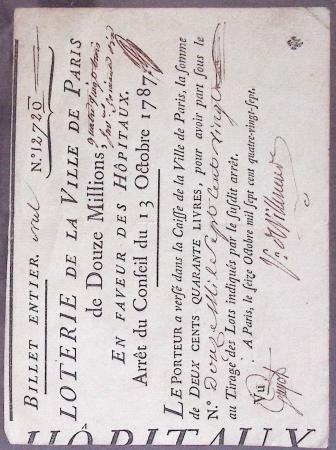 BILLET ENTIER, N.º 12720
LOTERIE DE LA VILLE DE PARIS
de Douze Millions,
EN FAVEUR DES HÔPITAUX.
Arrêt du Conseil du 13 Octobre 1787.
LE PORTEUR a versé dans la Caisse de la Ville de Paris, la somme
de DEUX CENTS QUARANTE LIVRES, pour avoir part sous le
N.º Douze Mille Sept Cent Vingt
au Tirage des Lots indiqués par le susdit arrêt.
A Paris, le seize Octobre mil sept cent quatre-vingt-sept.
Vu
HÔPITAUX